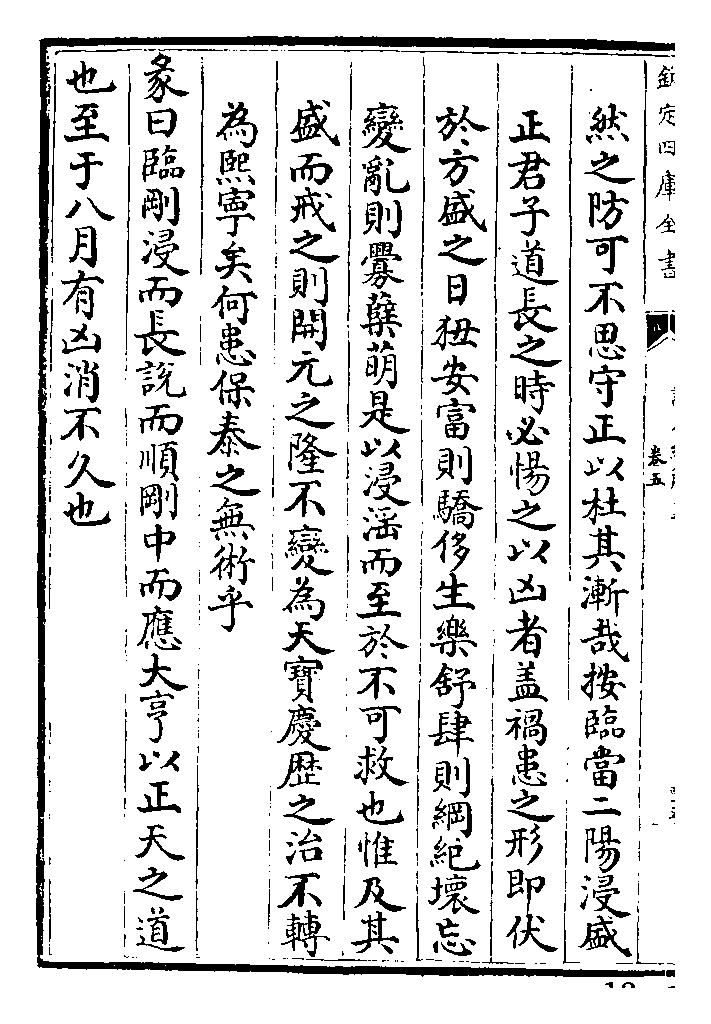 欽定四庫全書
卷五
然之防可不思守正以杜其漸哉按臨當二陽浸盛
正君子道長之時必惕之以凶者盖禍患之形即伏
於方盛之日狃安富則驕侈生樂舒肆則綱紀壞忘
變亂則釁孽萌是以浸淫而至於不可救也惟及其
盛而戒之則開元之隆不變為天寶慶歴之治不轉
為熙寧矣何患保泰之無術乎
彖曰臨剛浸而長說而順剛中而應大亨以正天之道
也至于八月有凶消不久也